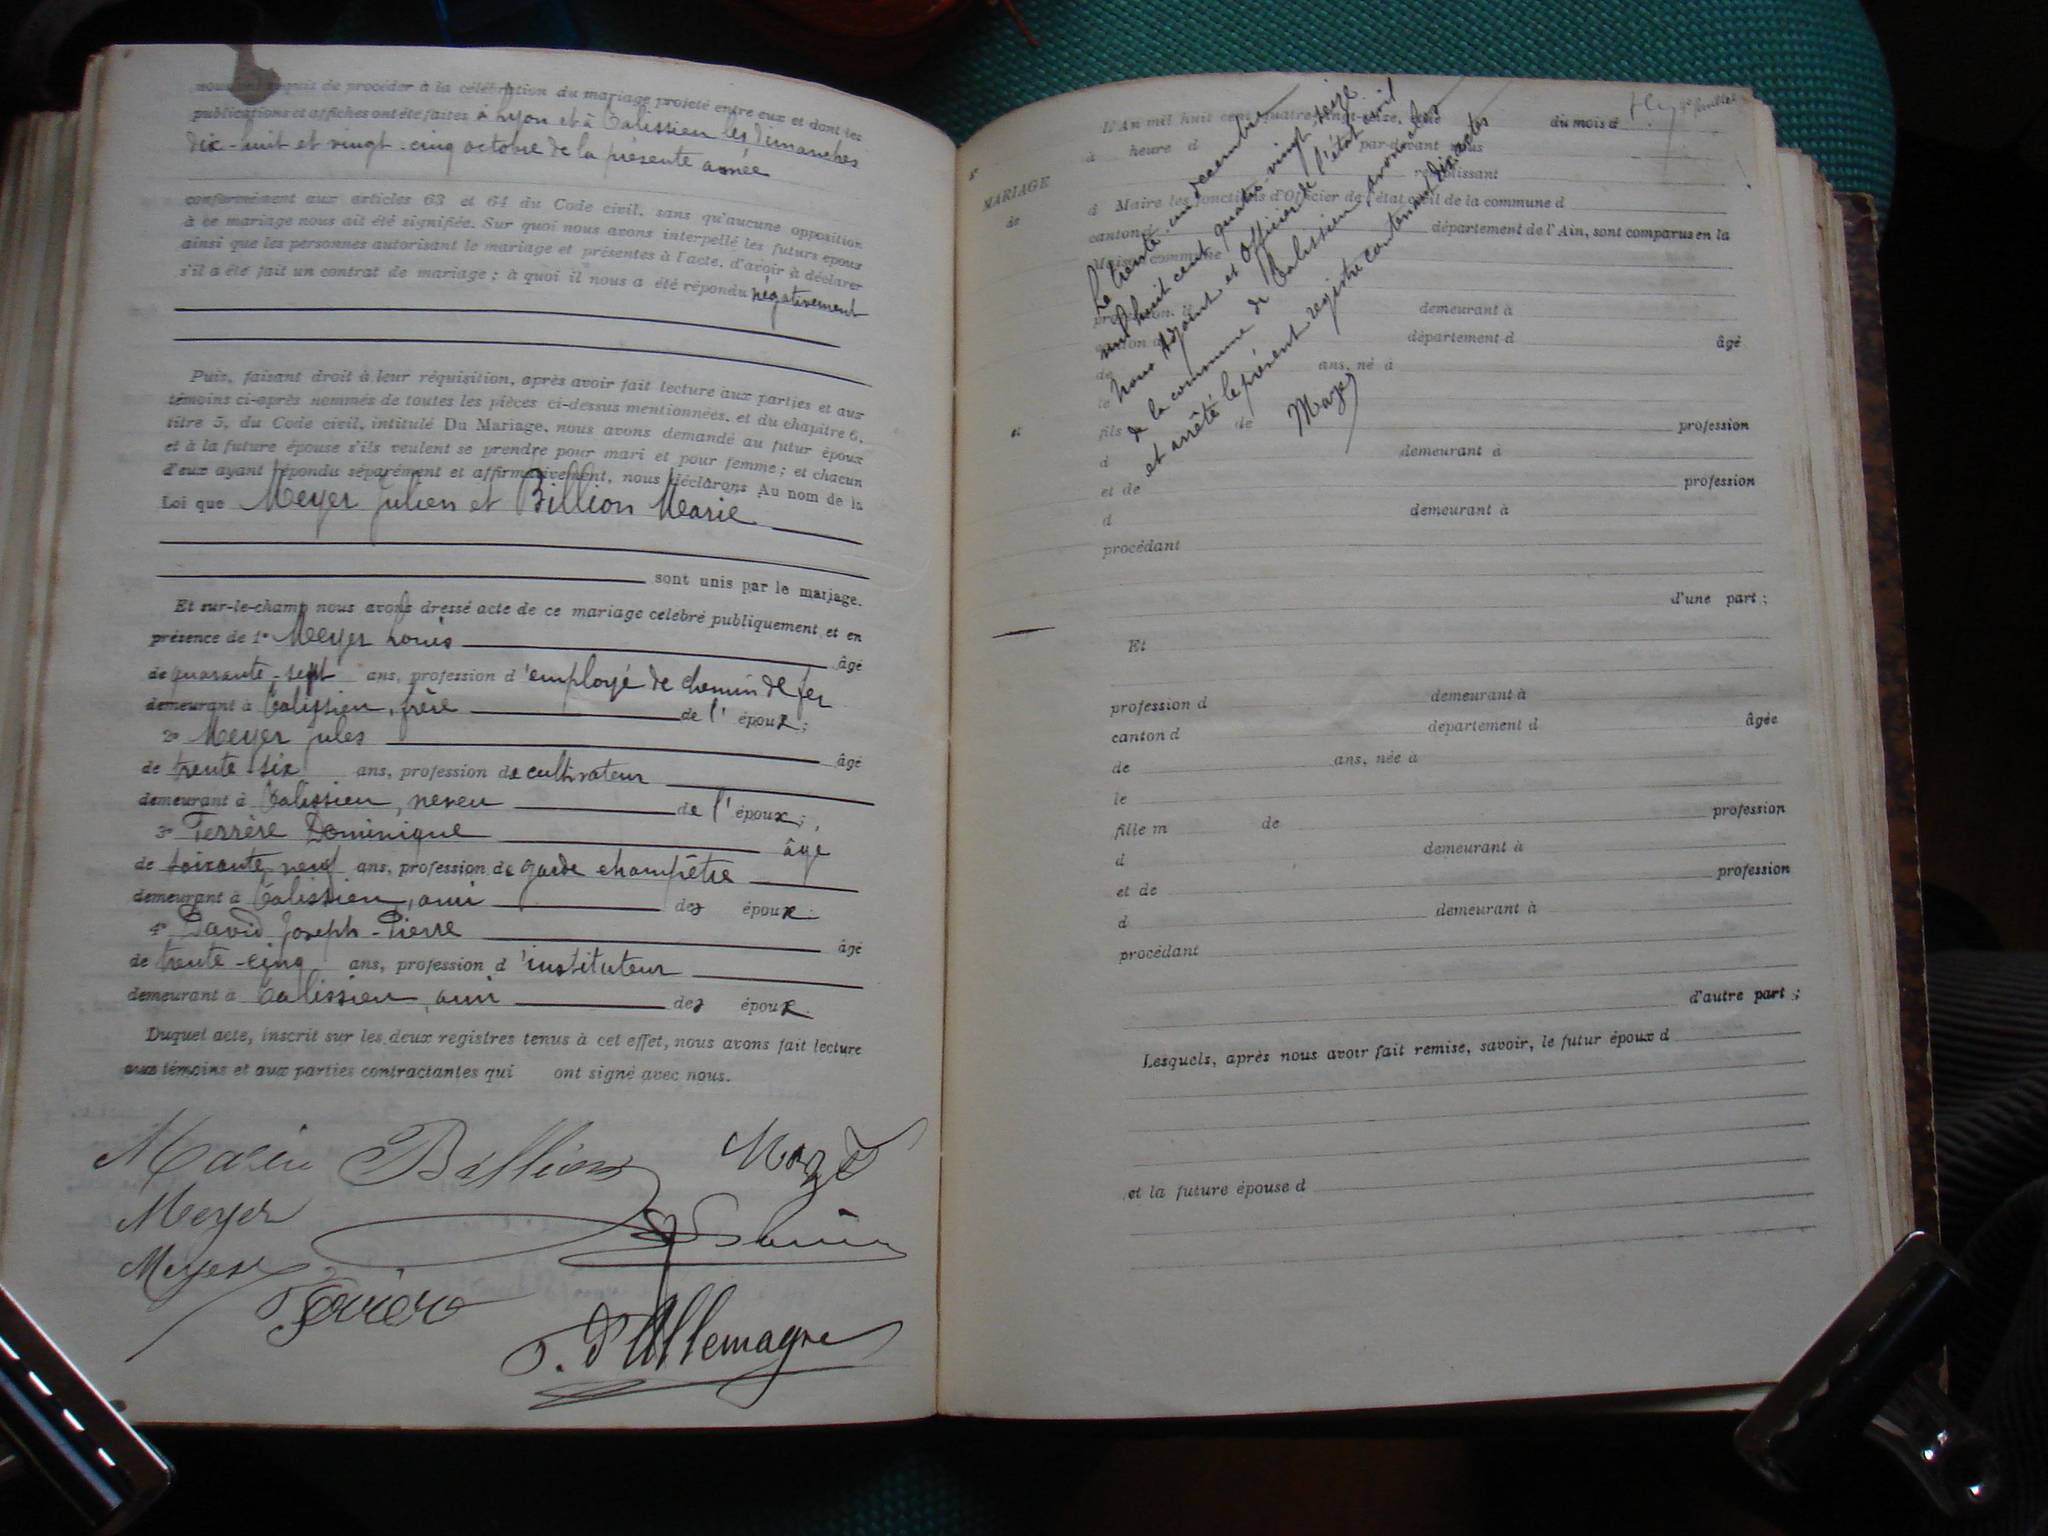 nous ont requis de procéder à la célébration du mariage projeté entre eux et dont les
publications et affiches ont été faites à Lyon et à Balissieu les dimanches
dix-huit et vingt-cinq octobre de la présente année
conformément aux articles 63 et 64 du Code civil, sans qu'aucune opposition
à ce mariage nous ait été signifiée. Sur quoi nous avons interpellé les futurs époux
ainsi que les personnes autorisant le mariage et présentes à l'acte, d'avoir à déclarer
s'il a été fait un contrat de mariage ; à quoi il nous a été répondu négativement
Puis, faisant droit à leur réquisition, après avoir fait lecture aux parties et aux
témoins ci-après nommés de toutes les pièces ci-dessus mentionnées, et du chapitre 6,
titre 5, du Code civil, intitulé Du Mariage, nous avons demandé au futur époux
et à la future épouse s'ils veulent se prendre pour mari et pour femme ; et chacun
d'eux ayant répondu séparément et affirmativement, nous déclarons Au nom de la
Loi que Meyer Julien et Billion Marie
sont unis par le mariage.
Et sur-le-champ nous avons dressé acte de ce mariage célébré publiquement et en
présence de 1° Meyer Louis âgé
de quarante-sept ans, profession d'employé de chemin de fer
demeurant à Balissieu, frère de l'époux ;
2° Meyer Jules âgé
de trente-six ans, profession de cultivateur
demeurant à Balissieu, neveu de l'époux ;
3° Ferrère Dominique âgé
de soixante-neuf ans, profession de garde champêtre
demeurant à Balissieu, ami des époux ;
4° David Joseph-Pierre âgé
de trente-cinq ans, profession d'instituteur
demeurant à Balissieu, ami des époux.
Duquel acte, inscrit sur les deux registres tenus à cet effet, nous avons fait lecture
aux témoins et aux parties contractantes qui ont signé avec nous.
Marie Billion
Meyer
Meyer
D'Allemagne
4e feuillet
L'An mil huit cent quatre-vingt-seize, du mois d
à heure d par-devant nous
remplissant
MARIAGE
de
d Maire les fonctions d'Officier de l'état civil de la commune d
canton d département de l'Ain, sont comparus en la
Maison commune
Le trente-un décembre
mil huit cent quatre-vingt-seize
Nous Adjoint et Officier de l'état civil
de la commune de Balissieu avons clos
et arrêté le présent registre contenant dix actes
profession d demeurant à
canton d département d âgé
de ans, né à
le
et
fils de profession
d demeurant à
et de profession
d demeurant à
procédant
d'une part ;
Et
profession d demeurant à
canton d département d âgée
de ans, née à
le
fille m de profession
d demeurant à
et de profession
d demeurant à
procédant
d'autre part ;
Lesquels, après nous avoir fait remise, savoir, le futur époux d
et la future épouse d